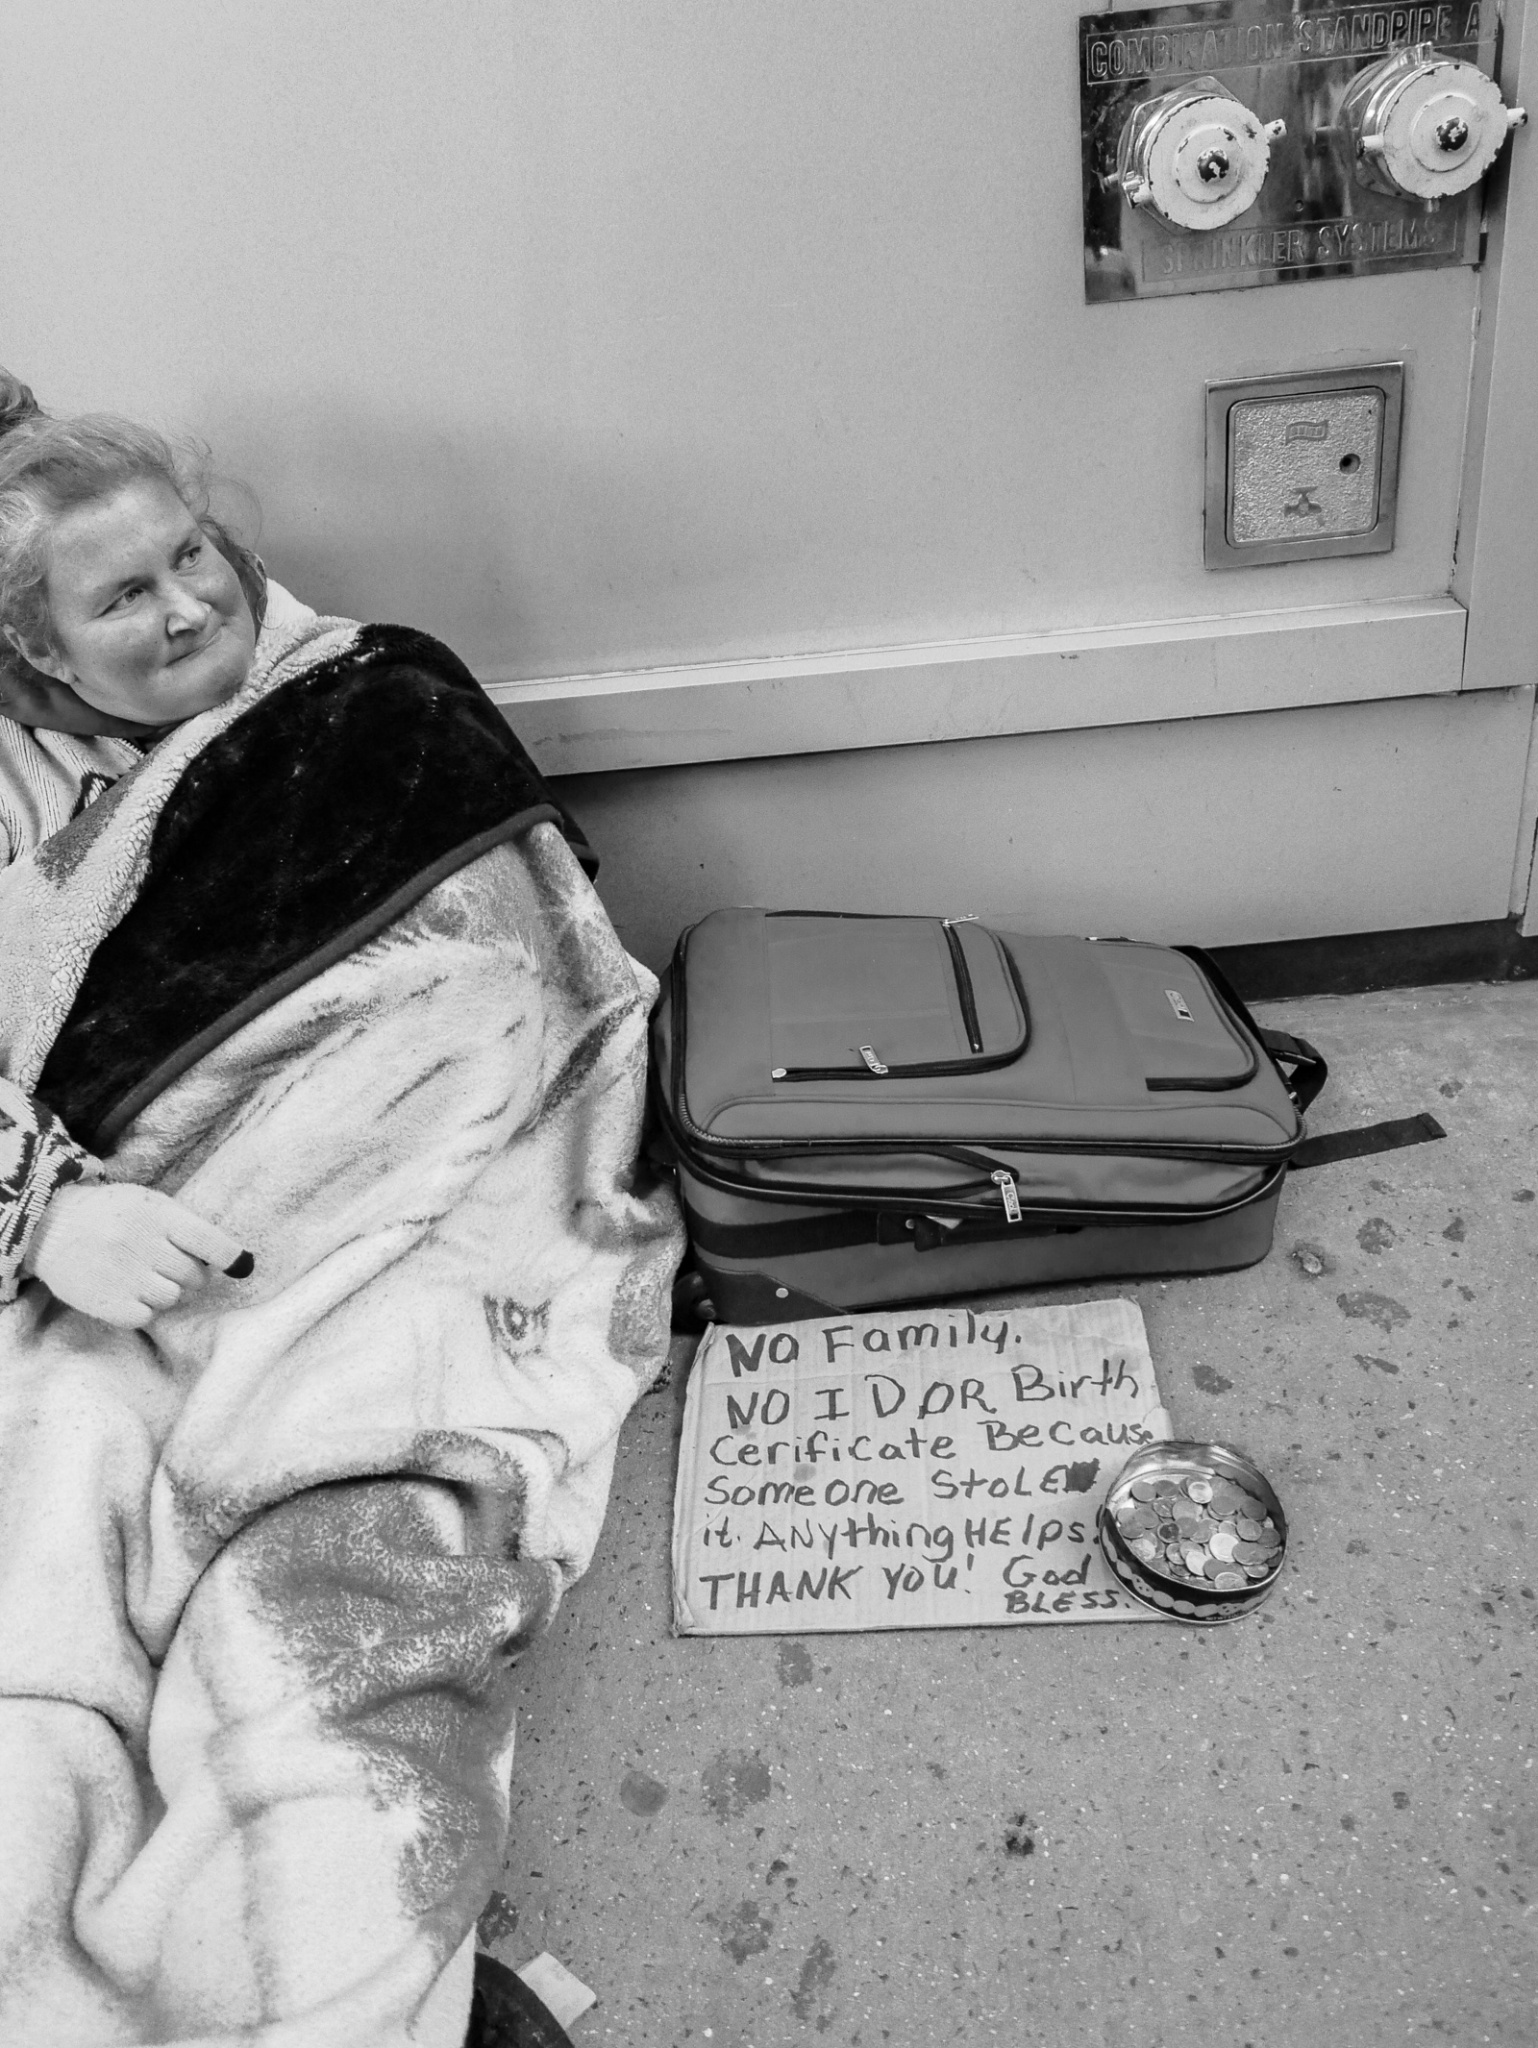 COMBINATION STANDPIPE A
SPRINKLER SYSTEMS
NO Family.
NO I D OR Birth
Cerificate Because
Someone STOLE
it. ANything HElps!
THANK YOU! God
BLESS.